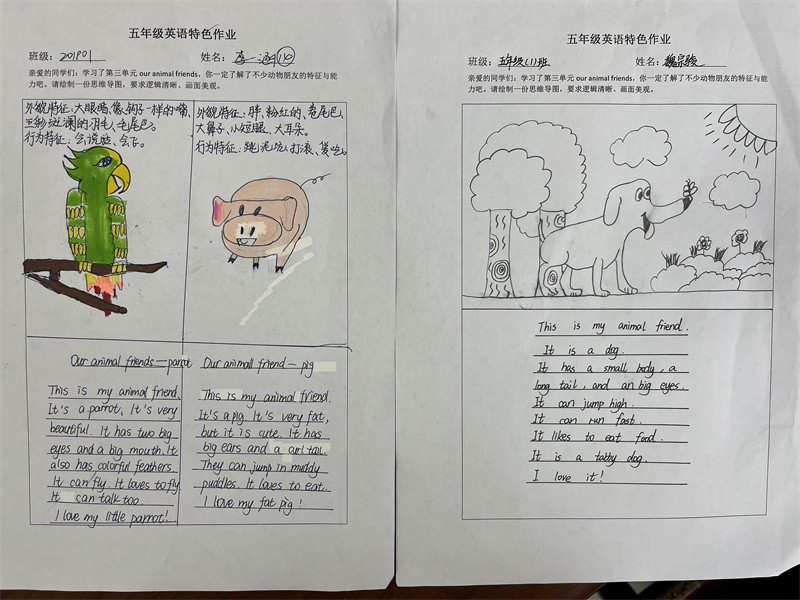 五年级英语特色作业
班级: 201901 姓名: 李一涵
亲爱的同学们：学习了第三单元 our animal friends，你一定了解了不少动物朋友的特征与能
力吧。请绘制一份思维导图，要求逻辑清晰、画面美观。
外貌特征：大眼睛、像钩子一样的嘴、
五彩斑斓的羽毛、毛尾巴。
行为特征：会说话、会飞。
外貌特征：胖、粉红的、卷尾巴、
大鼻子、小短腿、大耳朵。
行为特征：跳泥坑、打滚、贪吃。
Our animal friends—parrot
This is my animal friend.
It's a parrot. It's very
beautiful. It has two big
eyes and a big mouth. It
also has colorful feathers.
It can fly. It loves to fly.
It can talk too.
I love my little parrot!
Our animall friend — pig
This is my animal friend.
It's a pig. It's very fat,
but it is cute. It has
big ears and a curl tail.
They can jump in muddy
puddles. It loves to eat.
I love my fat pig!
五年级英语特色作业
班级: 五年级(1)班 姓名: 魏宗骏
亲爱的同学们：学习了第三单元 our animal friends，你一定了解了不少动物朋友的特征与能
力吧。请绘制一份思维导图，要求逻辑清晰、画面美观。
This is my animal friend.
It is a dog.
It has a small body, a
long tail, and an big eyes.
It can jump high.
It can run fast.
It likes to eat food.
It is a tatty dog.
I love it!